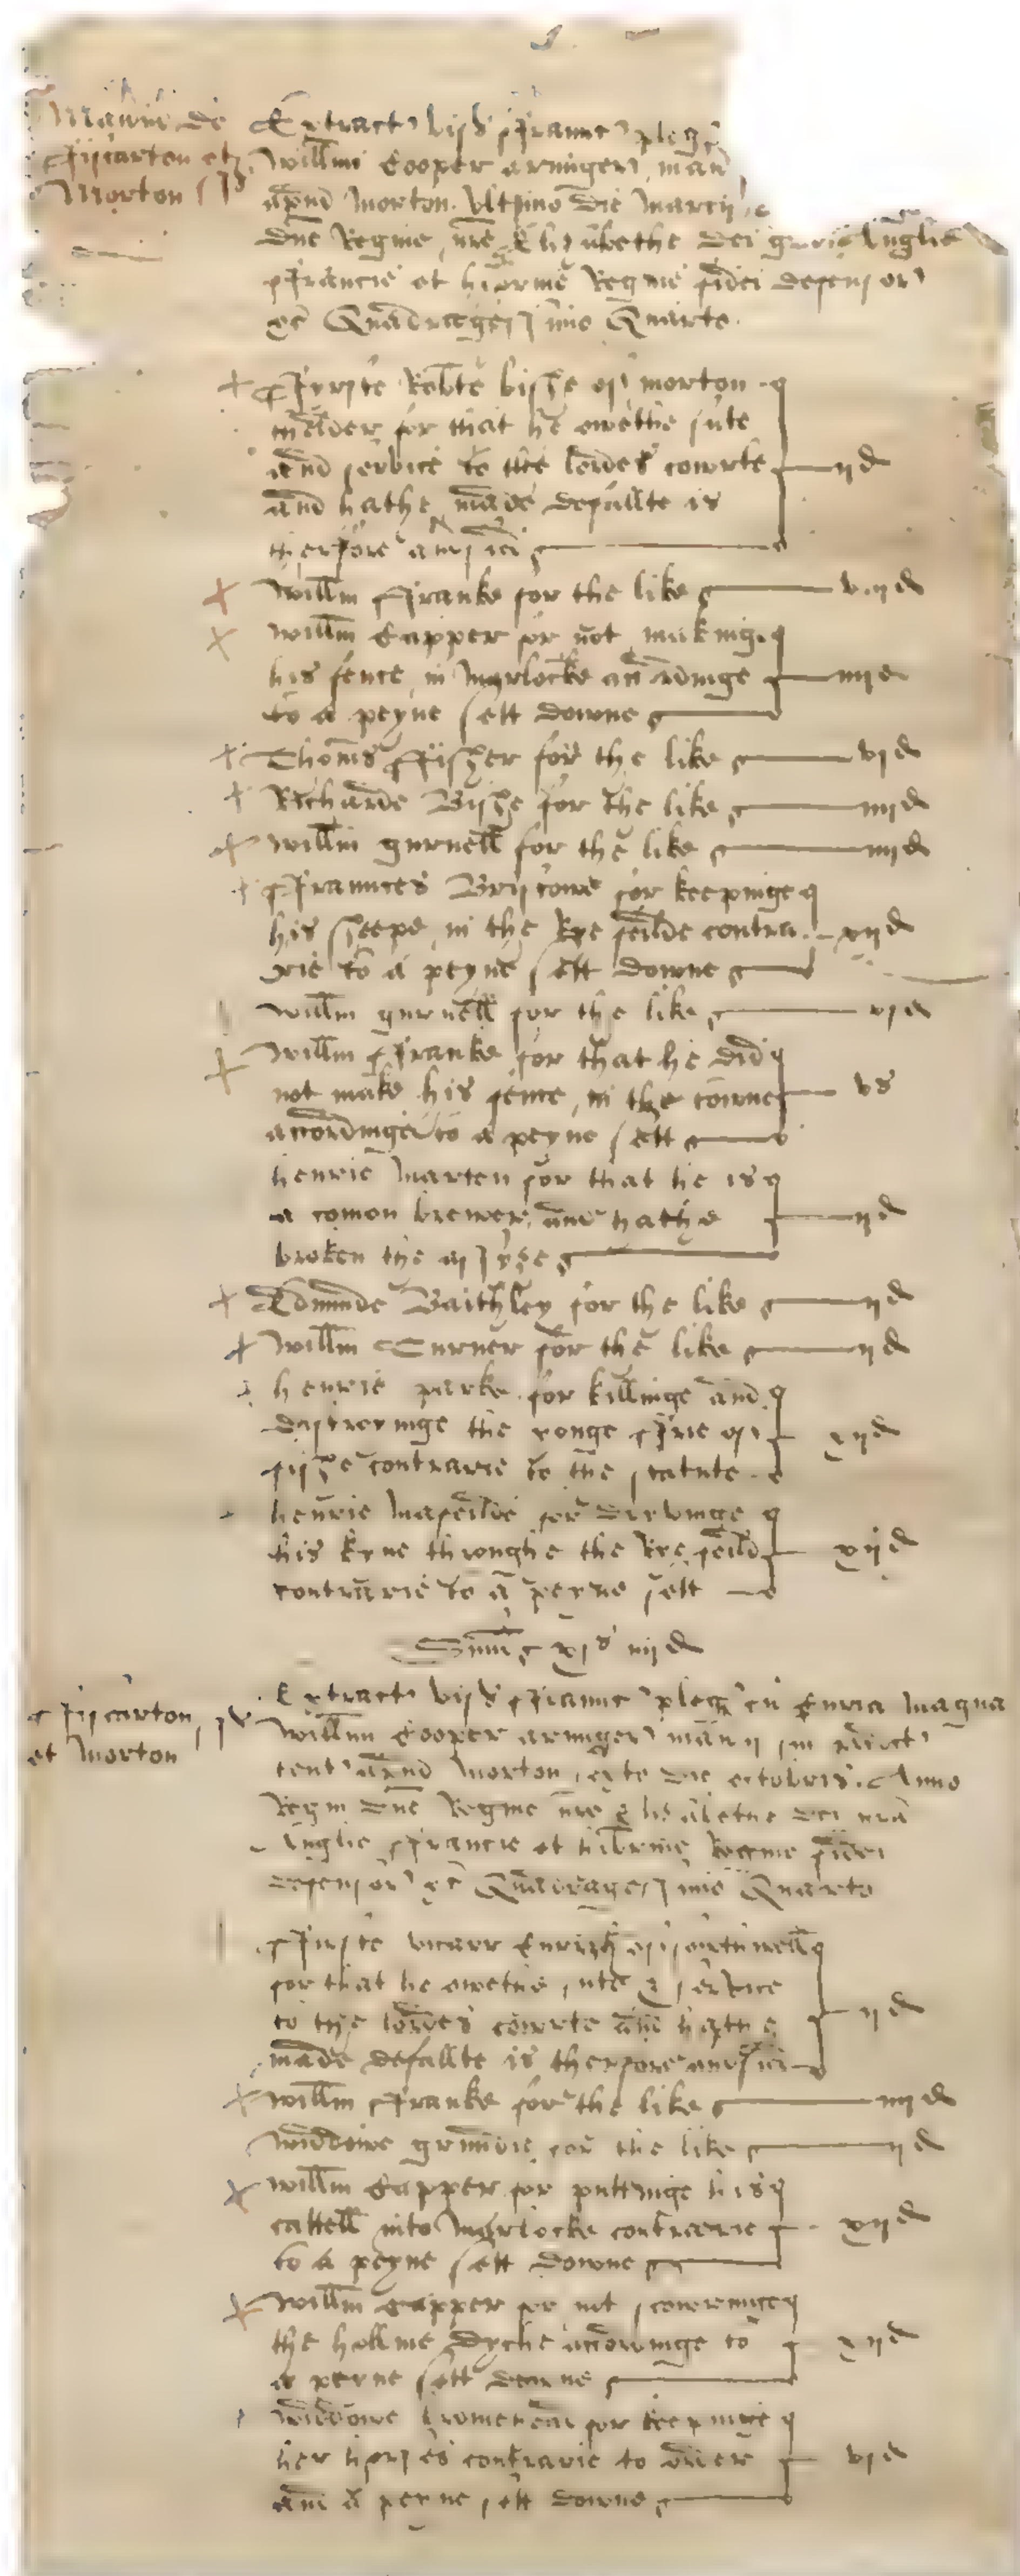 Maner de
ffiscarton et
Morton
Extract vis ffrannc pleg
Willmi Cooper armiger man
apud Morton ultimo die Marcij
Dne Regine nre Elizabethe Dei gracie Anglie
ffrancie et hibernie Regine fidei defensor
&c Quadragessimo Quarto
ffyrste Robte bishe of morton
for that he owethe sute
and service to the lordes cowrte ijd
and hathe made defallte is
therfore amsied
Willm ffranke for the like viijd
Willm Capper for not makinge
his fence in Morlocke accordinge iiijd
to a peyne sett downe
Thoms ffisher for the like vjd
Richarde Bishe for the like iiijd
Willm gurnell for the like iiijd
ffraunces Briscowe for keepinge
his sheepe in the Rye feilde contra xijd
rie to a peyne sett downe
Willm gurnell for the like vjd
Willm ffranke for that he did
not make his fence in the towne vs
accordinge to a peyne sett
henrie Marten for that he is
a comon brewer and hathe ijd
broken the assyse
Edmunde Baithley for the like ijd
Willm Turner for the like ijd
henrie parke for killinge and
distroyinge the yonge ffrie of xijd
fishe contrarie to the statute
henrie Mafeilde for dryvinge
his kyne throughe the Rye feild xijd
contrarie to a peyne sett
Sum xjs iiijd
ffiscarton
et Morton
Extract vis ffrannc pleg cu Curia Magna
Willmi Cooper armiger manij sui
tent apud Morton die octobris Anno
Regni Dne Regine nre Elizabethe Dei gra
Anglie ffrancie et hibernie Regine fidei
defensor &c Quadragessimo Quarto
ffirste vicarr of southwell
for that he owethe sute & service
to the lordes cowrte and hathe ijd
made defallte is therfore amsied
Willm ffranke for the like iiijd
Widdowe grundie for the like ijd
Willm Capper for puttinge his
cattell into Morlocke contrarie xijd
to a peyne sett downe
Willm Capper for not scowringe
the hollme dyche accordinge to xijd
a peyne sett downe
Widdowe for keepinge
her horses contrarie to order vjd
and a peyne sett downe